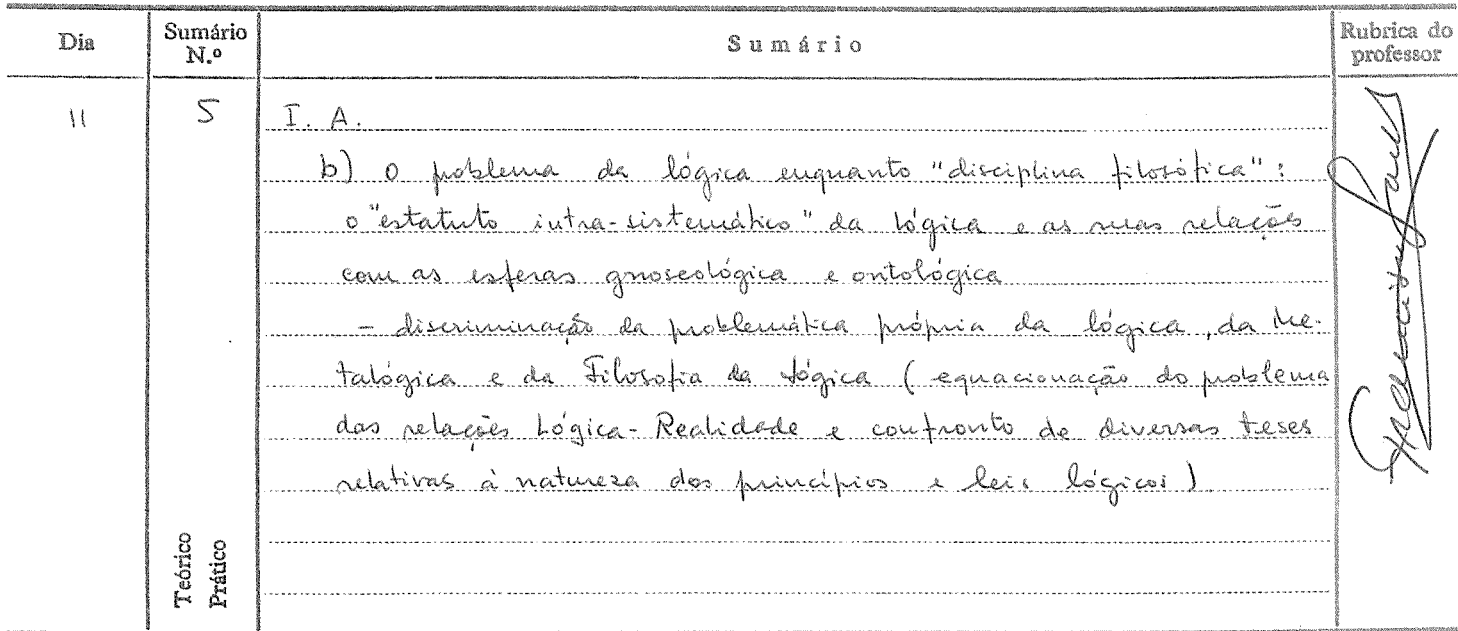 Dia
Sumário
N.º
Sumário
Rubrica do
professor
11
5
I. A.
b) O problema da lógica enquanto "disciplina filosófica":
o "estatuto intra-sistemático" da lógica e as suas relações
com as esferas gnoseológica e ontológica
- discriminação da problemática própria da lógica, da Me-
talógica e da Filosofia da Lógica (equacionação do problema
das relações Lógica-Realidade e confronto de diversas teses
relativas à natureza dos princípios e leis lógicos).
Teórico
Prático